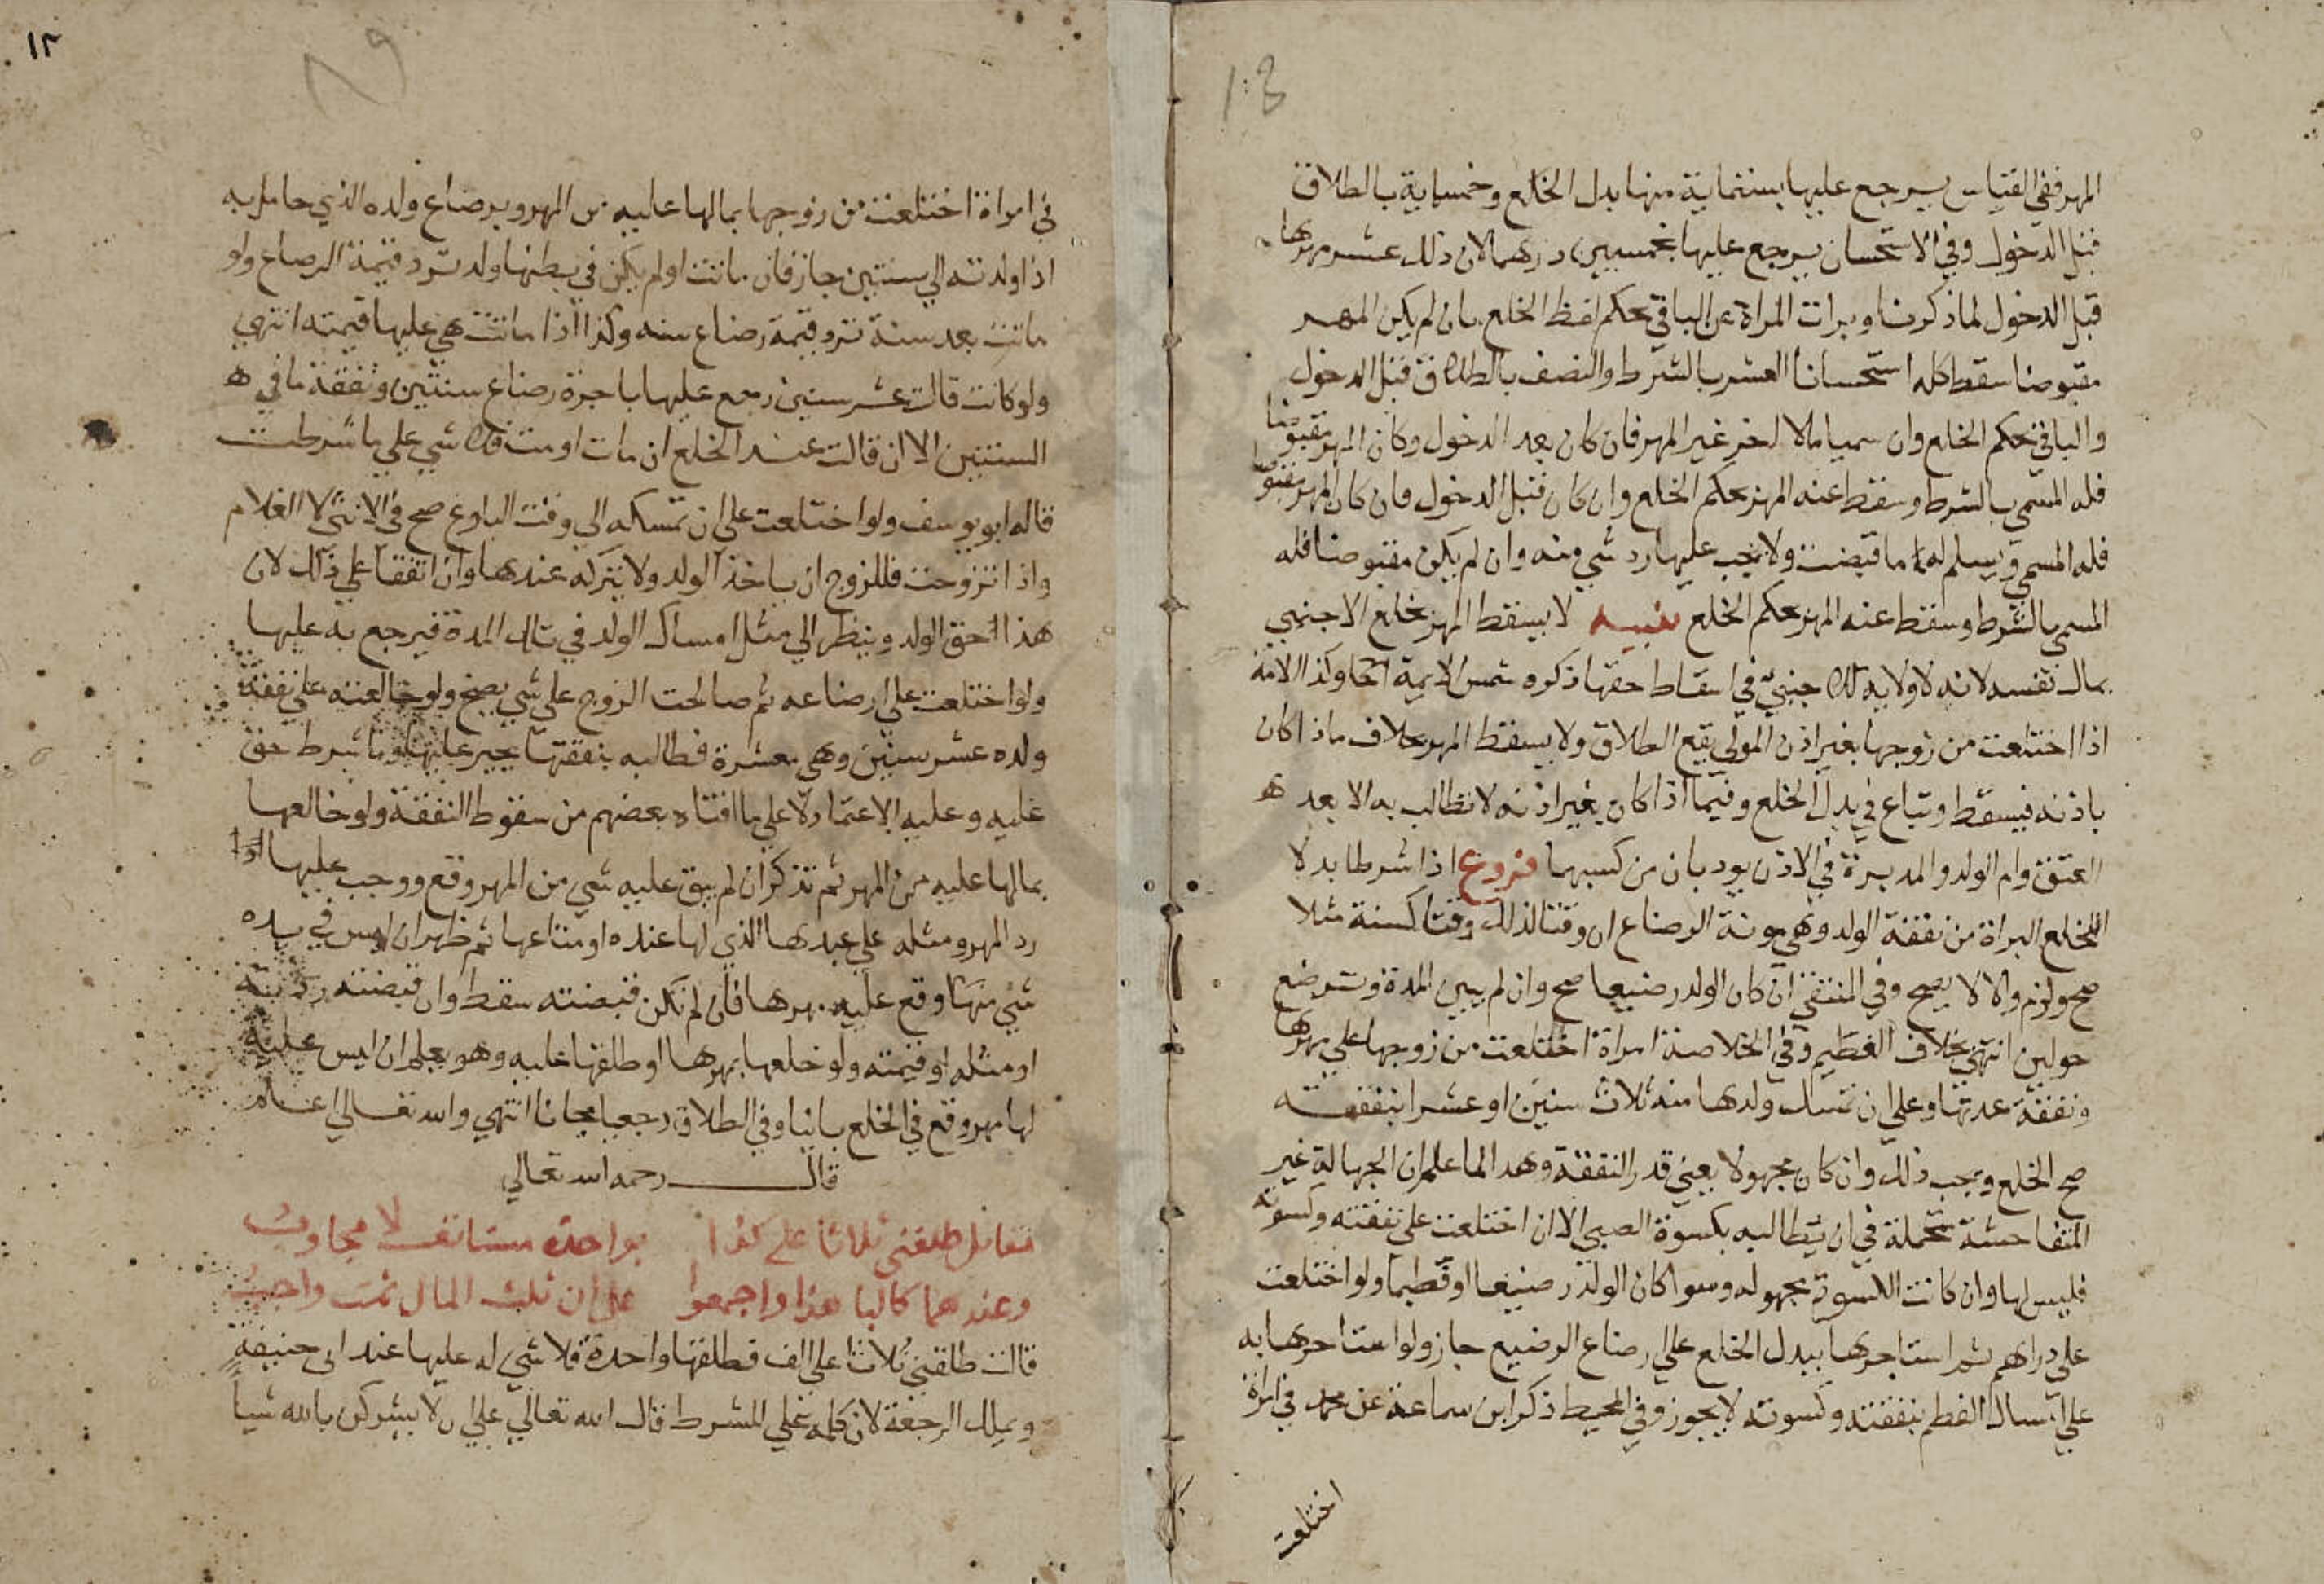 المهر ففي القياس يرجع عليها بستماية منها بدل الخلع وخمسماية بالطلاق
قبل الدخول وفي الاستحسان يرجع عليها بخمسين درهما لان ذلك عشر مهرها
قبل الدخول لما ذكرنا وبرات المراة عن الباقي بحكم لفظ الخلع بان لم يكن المهر
مقبوضا سقط كله استحسانا العشر بالشرط والنصف بالطلاق قبل الدخول
والباقي بحكم الخلع وان سميا مالا اخر غير المهر فان كان بعد الدخول وكان المهر مقبوضا
فله المسمي بالشرط وسقط عنه المهر بحكم الخلع وان كان قبل الدخول فان كان المهر مقبوضا
فله المسمي ويسلم لها ما قبضت ولا يجب عليها رد شي منه وان لم يكن مقبوضا فله
المسمي بالشرط وسقط عنه المهر بحكم الخلع تنبيه لا يسقط المهر بخلع الاجنبي
بمال نفسه لانه لا ولاية للاجنبي في اسقاط حقها ذكره شمس الايمة وكذا الامة
اذا اختلعت من زوجها بغير اذن المولي يقع الطلاق ولا يسقط المهر بخلاف ما اذا كان
باذنه فيسقط وتباع في بدل الخلع وفيما اذا كان بغير اذنه لا تطالب به الا بعد
العتق وام الولد والمدبرة في الاذن يوديان من كسبهما فروع اذا شرطا بدلا
للخلع البراة من نفقة الولد وهي مونة الرضاع ان وقتا لذلك وقتا كسنة مثلا
صح ولزم والا لا يصح وفي المنتقي ان كان الولد رضيعا صح وان لم يبين المدة وترضع
حولين انتهي بخلاف الفطيم وفي الخلاصة امراة اختلعت من زوجها علي مهرها
ونفقة عدتها وعلي ان تمسك ولدها منه ثلاث سنين او عشرا بنفقته
صح الخلع ويجب ذلك وان كان مجهولا يعني قدر النفقة وهذا لما علم ان الجهالة غير
المتفاحشة متحملة في ان يطالبه بكسوة الصبي الا ان اختلعت علي نفقته وكسوته
فليس لها وان كانت الكسوة مجهوله وسوا كان الولد رضيعا او فطيما ولو اختلعت
علي دراهم ثم استاجرها ببدل الخلع علي ارضاع الرضيع جاز ولو استاجرها به
علي امساك الفطيم بنفقته وكسوته لا يجوز وفي المحيط ذكر ابن سماعة عن محمد في امراة
اختلعت
١٢
في امراة اختلعت من زوجها بما لها عليه من المهر وبرضاع ولده الذي حامل به
اذا ولدته الي سنتين جاز فان ماتت او لم يكن في بطنها ولد ترد قيمة الرضاع ولو
ماتت بعد سنة ترد قيمة رضاع سنه وكذا اذا ماتت هي عليها قيمته انتهي
ولو كانت قالت عشر سنين رجع عليها باجرة رضاع سنتين ونفقة ما في
السنتين الا ان قالت عند الخلع ان مات او مت فلا شي علي ما شرطت
قاله ابو يوسف ولو اختلعت علي ان تمسكه الي وقت البلوغ صح في الانثي لا الغلام
واذا تزوجت فللزوج ان ياخذ الولد ولا يتركه عندها وان اتفقا علي ذلك لان
هذا حق الولد وينظر الي مثل امساك الولد في تلك المدة فيرجع به عليها
ولو اختلعت علي ارضاعه ثم صالحت الزوج علي شي يصح ولو خالعته علي نفقة
ولده عشر سنين وهي معسرة فطالبه بنفقتها يجبر عليها وما شرط حق
عليه وعليه الاعتماد لا علي ما افتاه بعضهم من سقوط النفقة ولو خالعها
بما لها عليه من المهر ثم تذكر ان لم يبق عليه شي من المهر وقع ووجب عليها
رد المهر ومثله علي عبدها الذي لها عنده او متاعها ثم ظهر ان ليس في يده
شي منها وقع عليه مهرها فان لم تكن قبضته سقط وان قبضته ردته
او مثله او قيمته ولو خلعها بمهرها او طلقها عليه وهو يعلم ان ليس عليه
لها مهر وقع في الخلع باينا وفي الطلاق رجعيا مجانا انتهي والله تعالي اعلم
قال رحمه الله تعالي
طلقني ثلاثا علي كذا بواحدة لا مجاوب
وعندهما كالبا هذا واجمعوا علي ان ثلث المال ثمت واجب
قالت طلقني ثلاثا علي الف فطلقها واحدة فلا شي له عليها عند ابي حنيفة
ويملك الرجعة لان كلمه علي للشرط قال الله تعالي علي ان لا يشركن بالله شيا